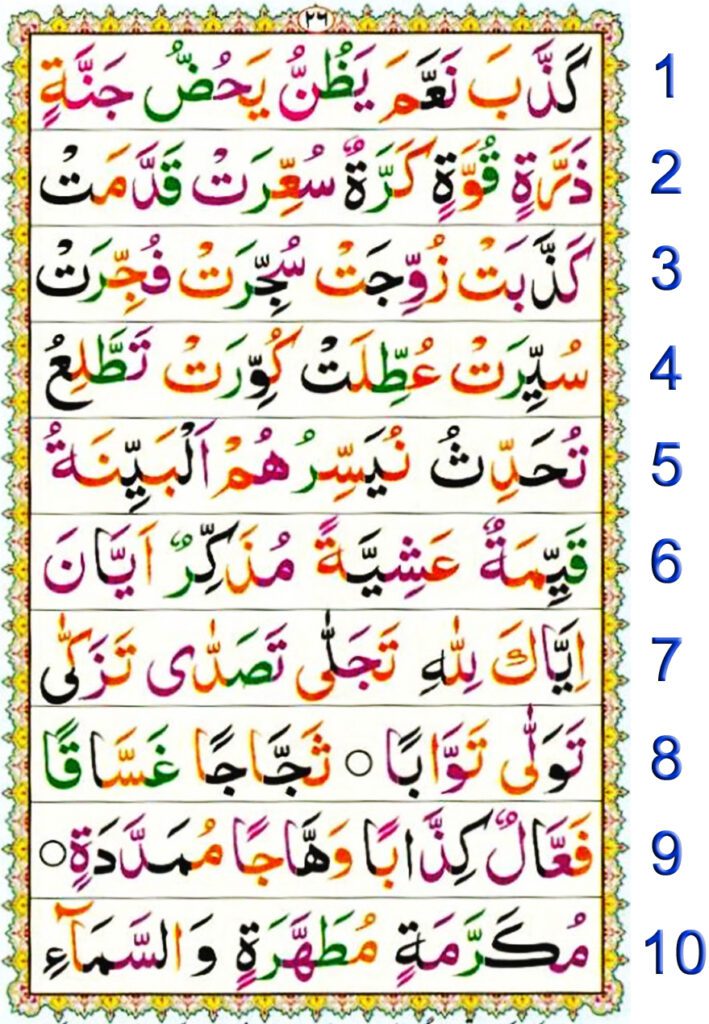 ٢٦
كَذَّبَ نَعَّمَ يَظُنُّ يَحُضُّ جَنَّةٍ 1
ذَرَّةٍ قُوَّةٍ كَرَّةٌ سُعِّرَتْ قَدَّمَتْ 2
كَذَّبَتْ زُوِّجَتْ سُجِّرَتْ فُجِّرَتْ 3
سُيِّرَتْ عُطِّلَتْ كُوِّرَتْ تَطَّلِعُ 4
تُحَدِّثُ نُيَسِّرُ هُمْ اَلْبَيِّنَةُ 5
قَيِّمَةٌ عَشِيَّةً مُذَكِّرٌ اَيَّانَ 6
اِيَّاكَ لِلّٰهِ تَجَلّٰى تَصَدّٰى تَزَكّٰى 7
تَوَلّٰى تَوَّابًا ○ ثَجَّاجًا غَسَّاقًا 8
فَعَّالٌ كِذَّابًا وَهَّاجًا مُمَدَّدَةٍ ○ 9
مُكَرَّمَةٍ مُطَهَّرَةٍ وَالسَّمَآءِ 10